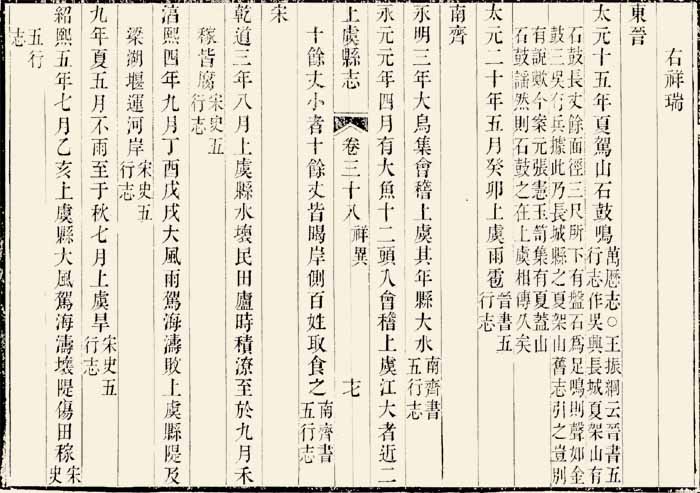 右祥瑞
東晉
太元十五年夏駕山石鼓鳴萬厯志○王振綱云晉書五
行志作吳興長城夏架山有
石鼓長丈餘面徑三尺所下有盤石為足鳴則聲如金
鼓三吳有兵據此乃長城縣之夏架山舊志引之豈別
有說歟今案元張憲玉笥集有夏蓋山
石鼓謠然則石鼓之在上虞相傳久矣
太元二十年五月癸卯上虞雨雹晉書五
行志
南齊
永明三年大鳥集會稽上虞其年縣大水南齊書
五行志
永元元年四月有大魚十二頭入會稽上虞江大者近二
上虞縣志
卷三十八
祥異
十餘丈小者十餘丈皆暍岸側百姓取食之南齊書
五行志
宋
乾道三年八月上虞縣水壞民田廬時積潦至於九月禾
稼皆腐宋史五
行志
淳熙四年九月丁酉戊戌大風雨駕海濤敗上虞縣隄及
梁湖堰運河岸宋史五
行志
九年夏五月不雨至于秋七月上虞旱宋史五
行志
紹熙五年七月乙亥上虞縣大風駕海濤壞隄傷田稼宋
史
五行
志